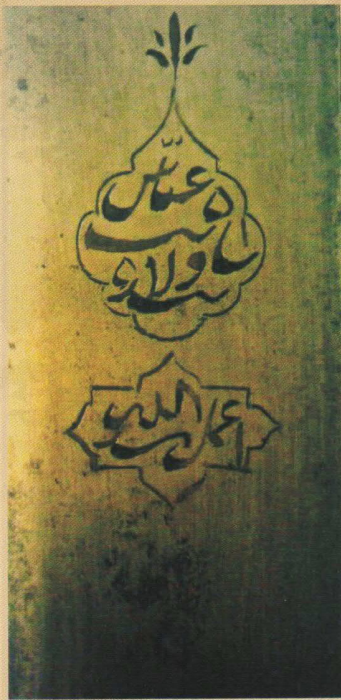 بنده شاه ولایت عباس
عمل اسد الله